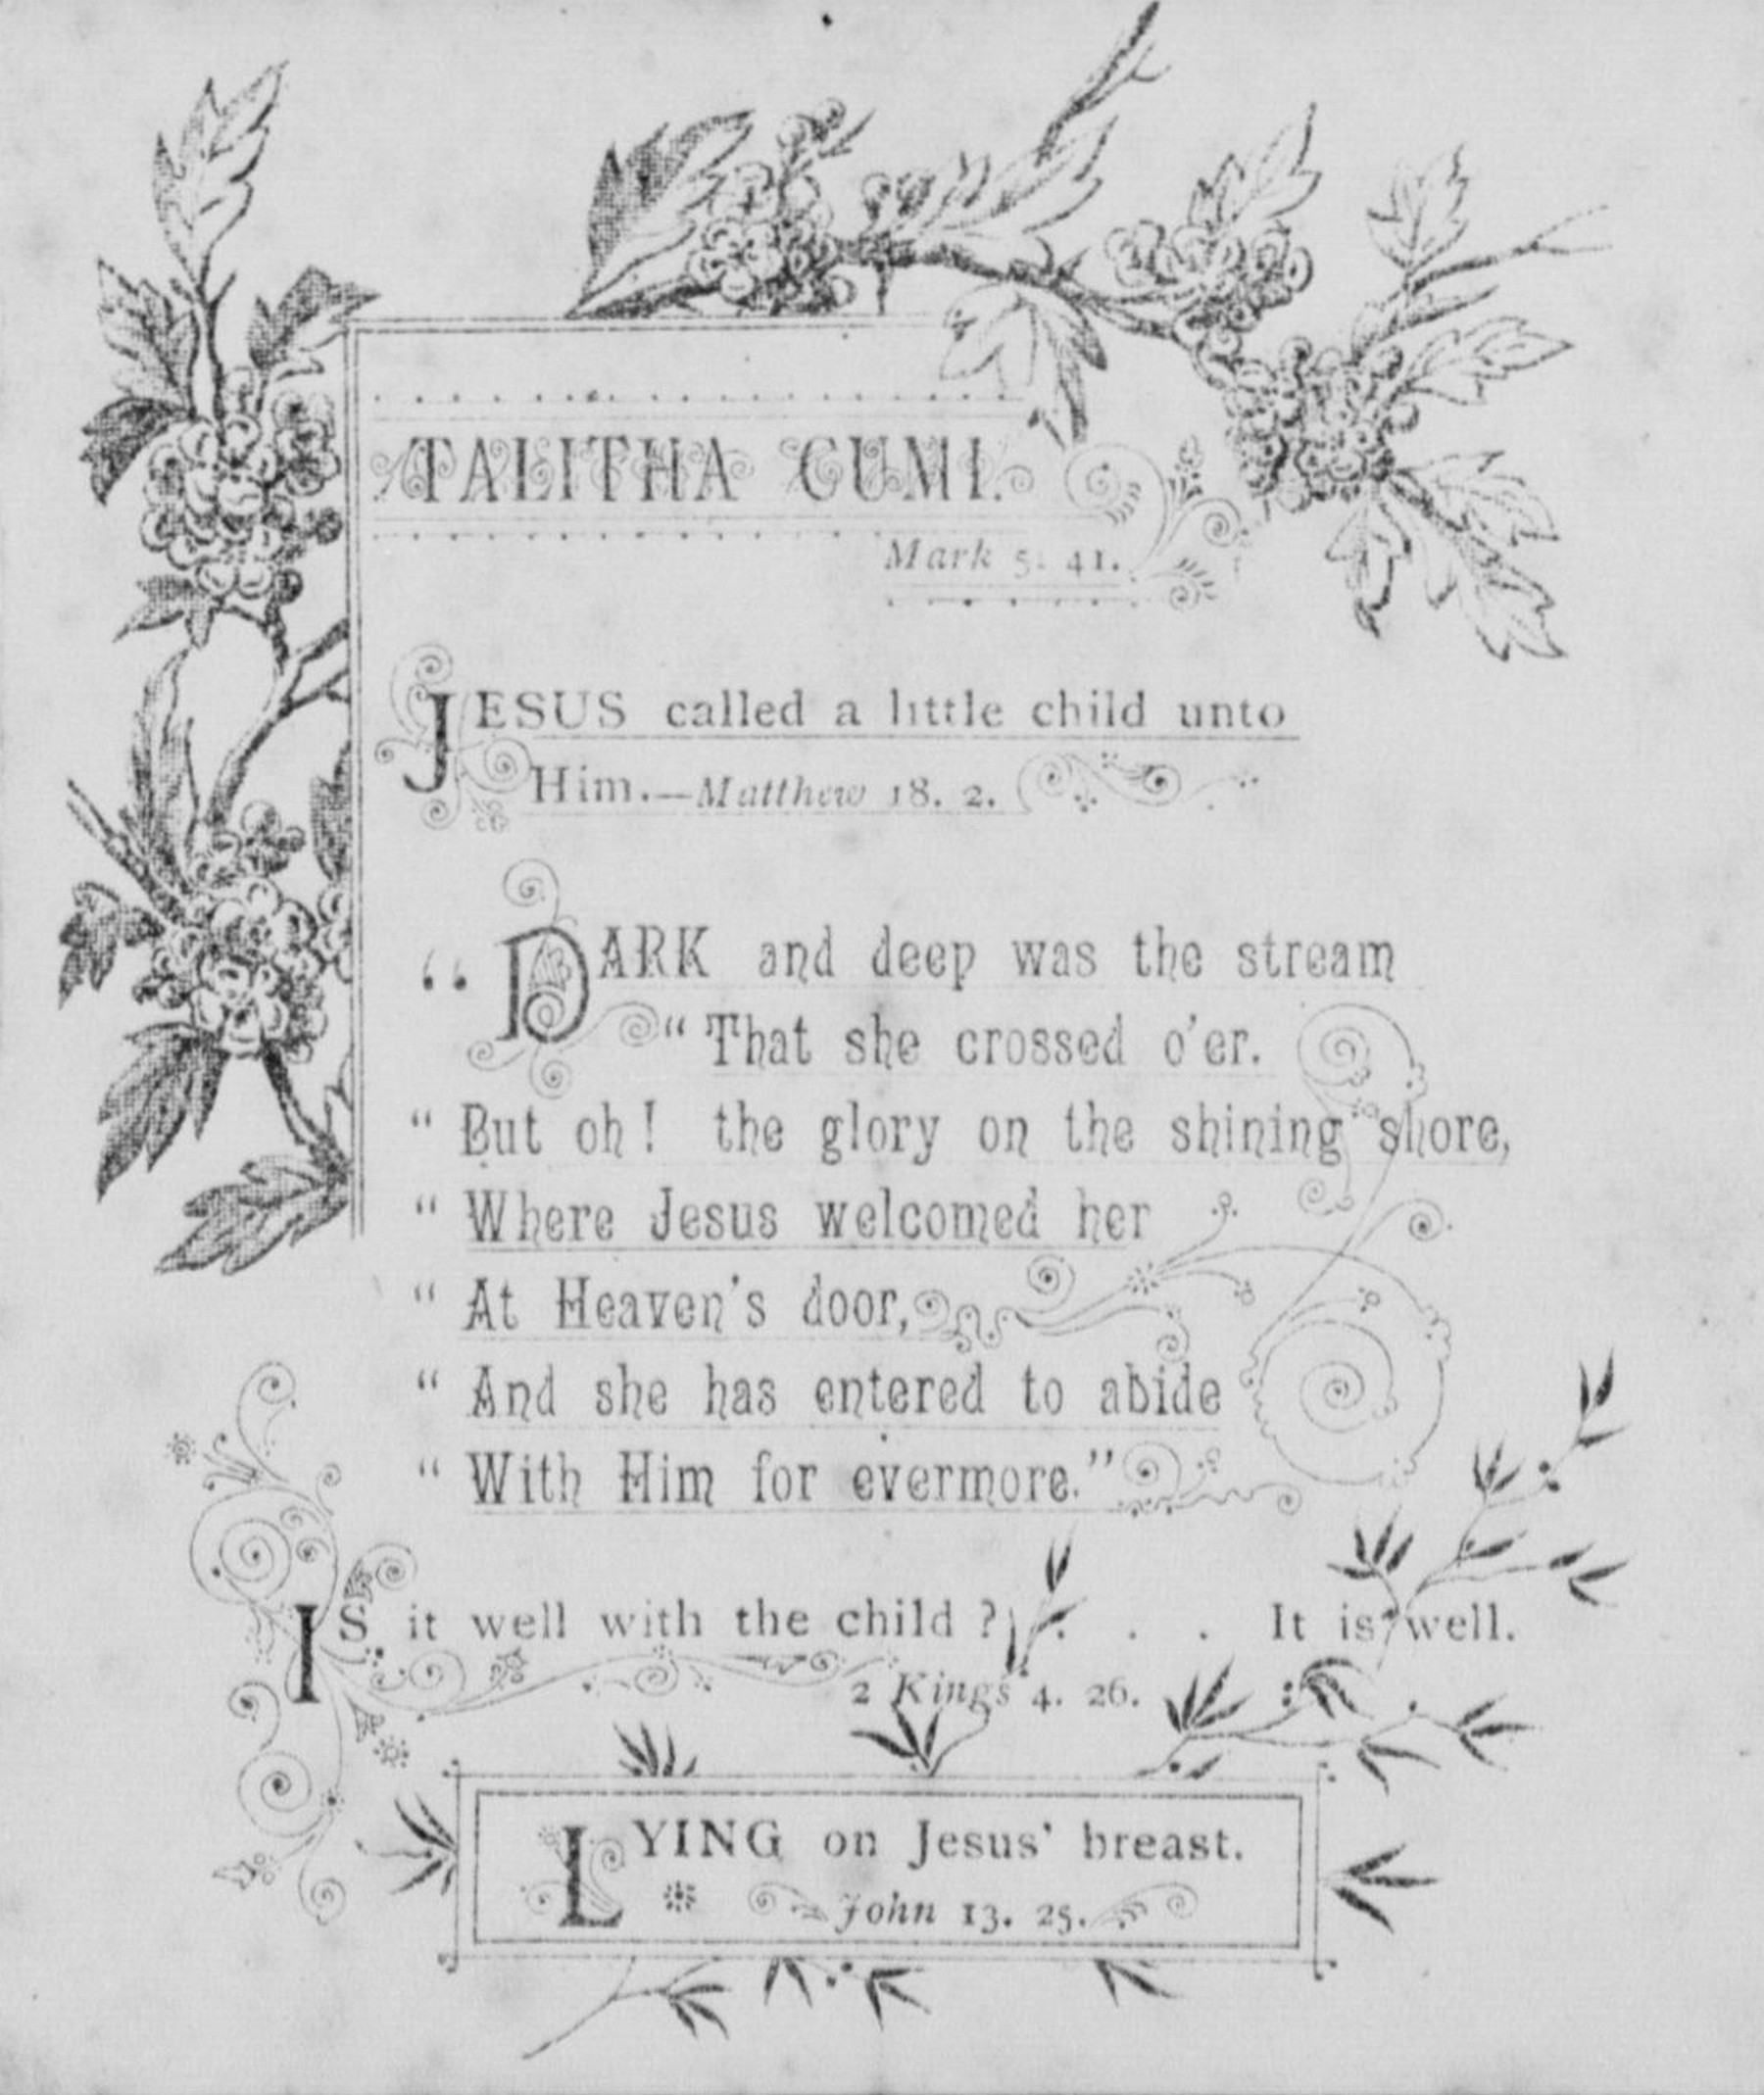 TALITHA CUMI.
Mark 5. 41.
JESUS called a little child unto
Him.—Matthew 18. 2.
“ DARK and deep was the stream
“ That she crossed o'er.
“ But oh! the glory on the shining shore,
“ Where Jesus welcomed her
“ At Heaven's door,
“ And she has entered to abide
“ With Him for evermore.”
IS it well with the child ? . . . It is well.
2 Kings 4. 26.
LYING on Jesus' breast.
John 13. 25.